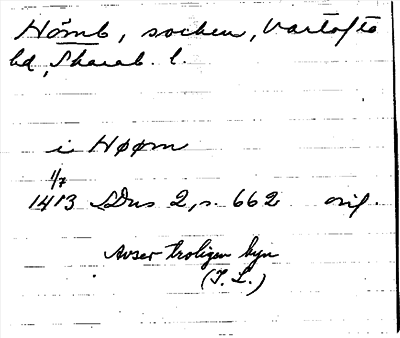 Hömb, socken, Vartofta
hd, Skarab. l.
i Høøm
1/7
1413 SDns 2, s. 662 orig.
Avser troligen byn
(I. L.)